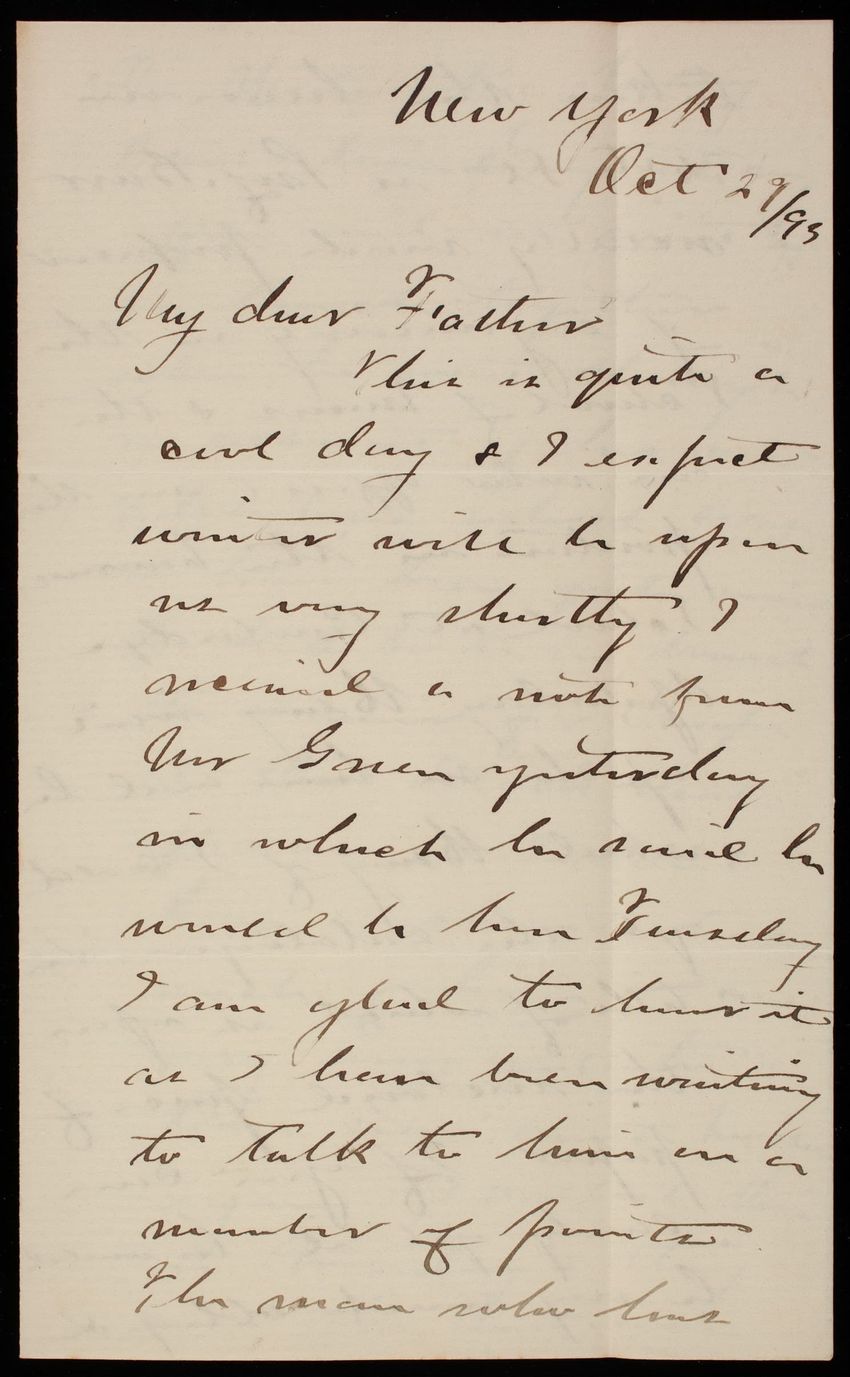 New York
Oct 29/93
My dear Father
This is quite a
cool day & I expect
winter will be upon
us very shortly I
received a note from
Mr Green yesterday
in which he said he
would be here Tuesday
I am glad to hear it
as I have been waiting
to talk to him on a
number of points
The man who has